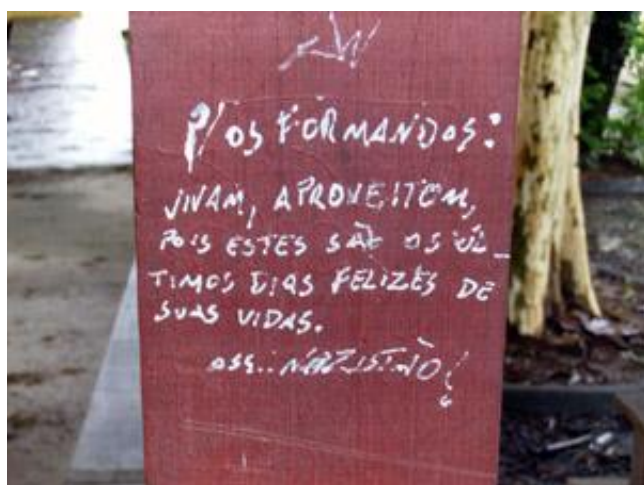 P/ OS FORMANDOS:
VIVAM, APROVEITEM,
POIS ESTES SÃO OS ÚL_
TIMOS DIAS FELIZES DE
SUAS VIDAS.
ASS.: